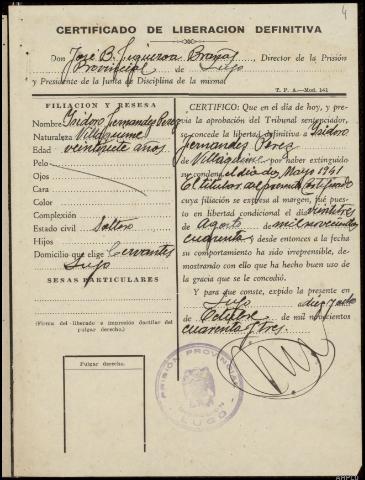 4
CERTIFICADO DE LIBERACION DEFINITIVA
Don José B. Figueroa Brañas, Director de la Prisión
Provincial de Lugo
y Presidente de la Junta de Disciplina de la misma
T. P. A.—Mod. 141
FILIACION Y RESEÑA
Nombre Isidoro Fernandez Perez
Naturaleza
Edad veintisiete años.
Pelo
Ojos
Cara
Color
Complexión
Estado civil Soltero
Hijos
Domicilio que elige Cervantes
Lugo
SEÑAS PARTICULARES
(Firma del liberado e impresión dactilar del
pulgar derecho).
Pulgar derecho.
CERTIFICO: Que en el día de hoy, y pre-
via la aprobación del Tribunal sentenciador,
se concede la libertad definitiva a Isidoro
Fernandez Pérez
de por haber extinguido
su condena el día de Mayo 1941
El titular del presente Certificado
cuya filiación se expresa al margen, fué pues-
to en libertad condicional el día veintitres
de Agosto de mil novecientos
cuarenta y desde entonces a la fecha
su comportamiento ha sido irreprensible, de-
mostrando con ello que ha hecho buen uso de
la gracia que se le concedió.
Y para que conste, expido la presente en
Lugo a diez y ocho
de Octubre de mil novecientos
cuarenta y tres.
PRISIÓN PROVINCIAL
LUGO